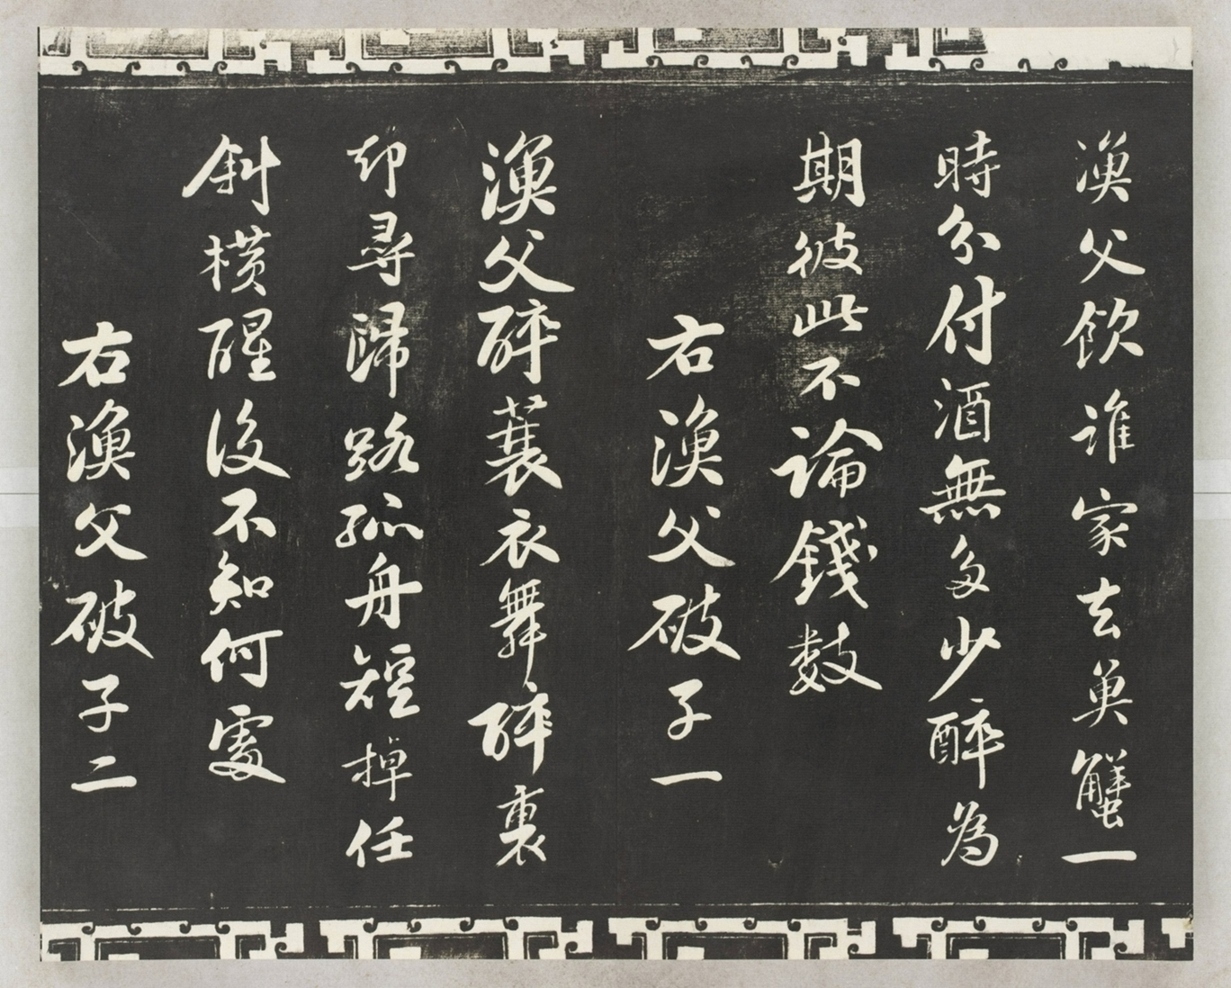 漁父飲誰家去魚蟹一
時分付酒無多少醉為
期彼此不論錢數
右漁父破子一
漁父醉蓑衣舞醉裏
却尋歸路孤舟短掉任
斜橫醒後不知何處
右漁父破子二